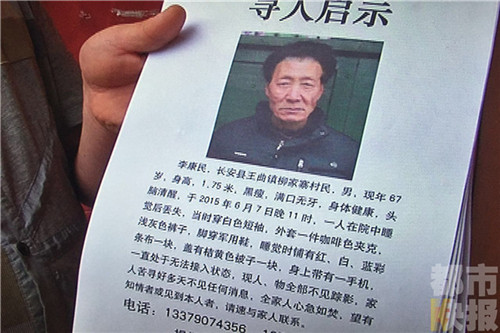 寻人启示
李康民，长安县王曲镇柳家寨村民，男，现年67
岁，身高，1.75米，黑瘦，满口无牙，身体健康，头
脑清醒，于2015年6月7日晚11时，一人在院中睡
觉后丢失，当时穿白色短袖，外套一件咖啡色夹克，
浅灰色裤子，脚穿军用鞋，睡觉时铺有红、白、蓝彩
条布一块，盖有桔黄色被子一块，身上带有一手机，
一直处于无法接入状态，现人、物全部不见踪影，家
人苦寻好多天不见任何消息，全家人心急如焚，望有
知情者或见到本人者，请速与家人联系。
电话：13379074356
都市
快报